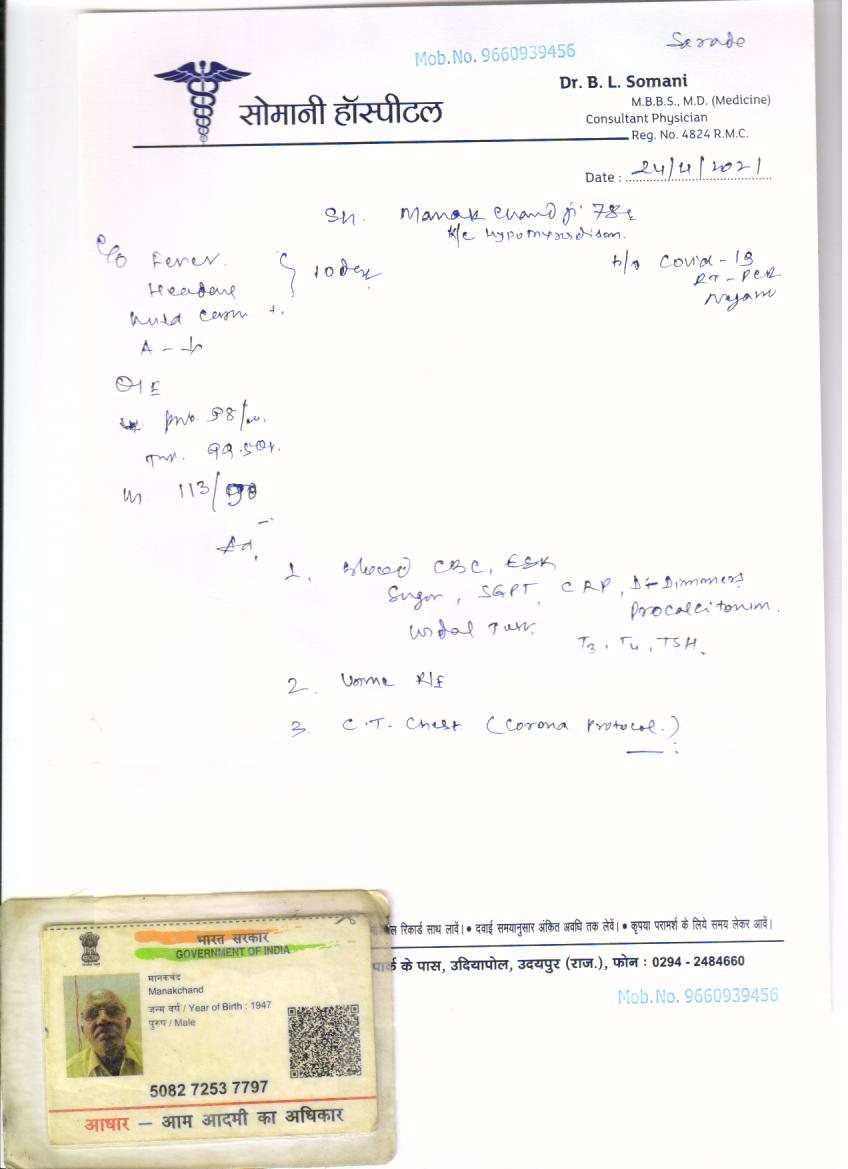 Mob.No. 9660939456
सोमानी हॉस्पीटल
Dr. B. L. Somani
M.B.B.S., M.D. (Medicine)
Consultant Physician
Reg. No. 4824 R.M.C.
Date : 24/4/2021
Manak Chand ji 78
C/o Fever.
Headache
10 days
Covid-19
RT-PCR
O/E
98/m.
99.5
113/90
Ad.
1. Blood CBC, ESR
Sugar, SGPT, CRP, D-Dimmers
Procalcitonim.
Widal Test.
T3, T4, TSH.
2. Urine R/E
3. C.T. Chest (Corona Protocol.)
रिकार्ड साथ लावें। • दवाई समयानुसार अंकित अवधि तक लेवें। • कृपया परामर्श के लिये समय लेकर आवें।
पार्क के पास, उदियापोल, उदयपुर (राज.), फोन : 0294 - 2484660
Mob.No. 9660939456
भारत सरकार
GOVERNMENT OF INDIA
मानकचंद
Manakchand
जन्म वर्ष / Year of Birth : 1947
पुरुष / Male
5082 7253 7797
आधार — आम आदमी का अधिकार